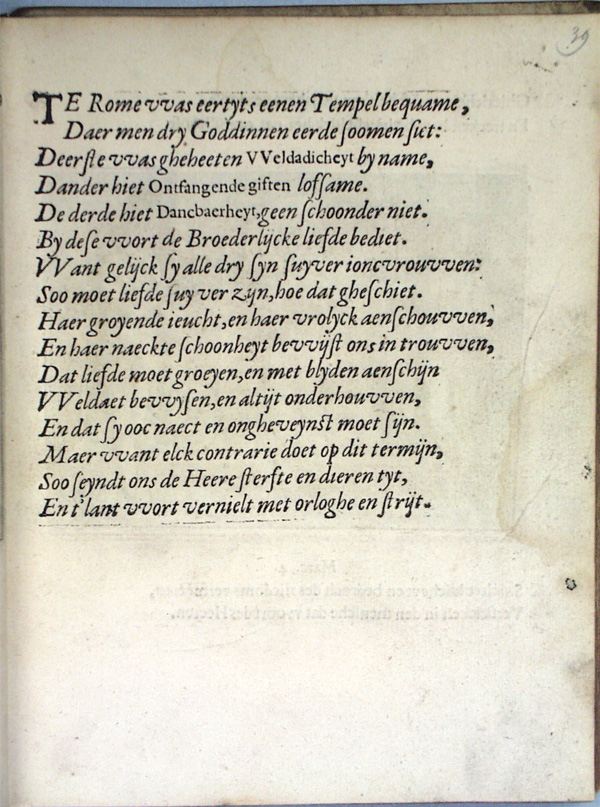 39
TE Rome vvas eertyts eenen Tempel bequame,
Daer men dry Goddinnen eerde soomen siet:
Deerste vvas gheheeten VVeldadicheyt by name,
Dander hiet Ontfangende giften loffame.
De derde hiet Dancbaerheyt, geen schoonder niet.
By dese vvort de Broederlijcke liefde bediet.
VVant gelijck sy alle dry syn suyver ioncvrouvven:
Soo moet liefde suyver zijn, hoe dat gheschiet.
Haer groyende ieucht, en haer vrolyck aenschouvven,
En haer naeckte schoonheyt bevvijst ons in trouvven,
Dat liefde moet groeyen, en met blyden aenschijn
VVeldaet bevvysen, en altijt onderhouvven,
En dat sy ooc naect en ongheveynst moet sijn.
Maer vvant elck contrarie doet op dit termijn,
Soo seyndt ons de Heere sterfte en dieren tyt,
En t'lant vvort vernielt met orloghe en strijt.